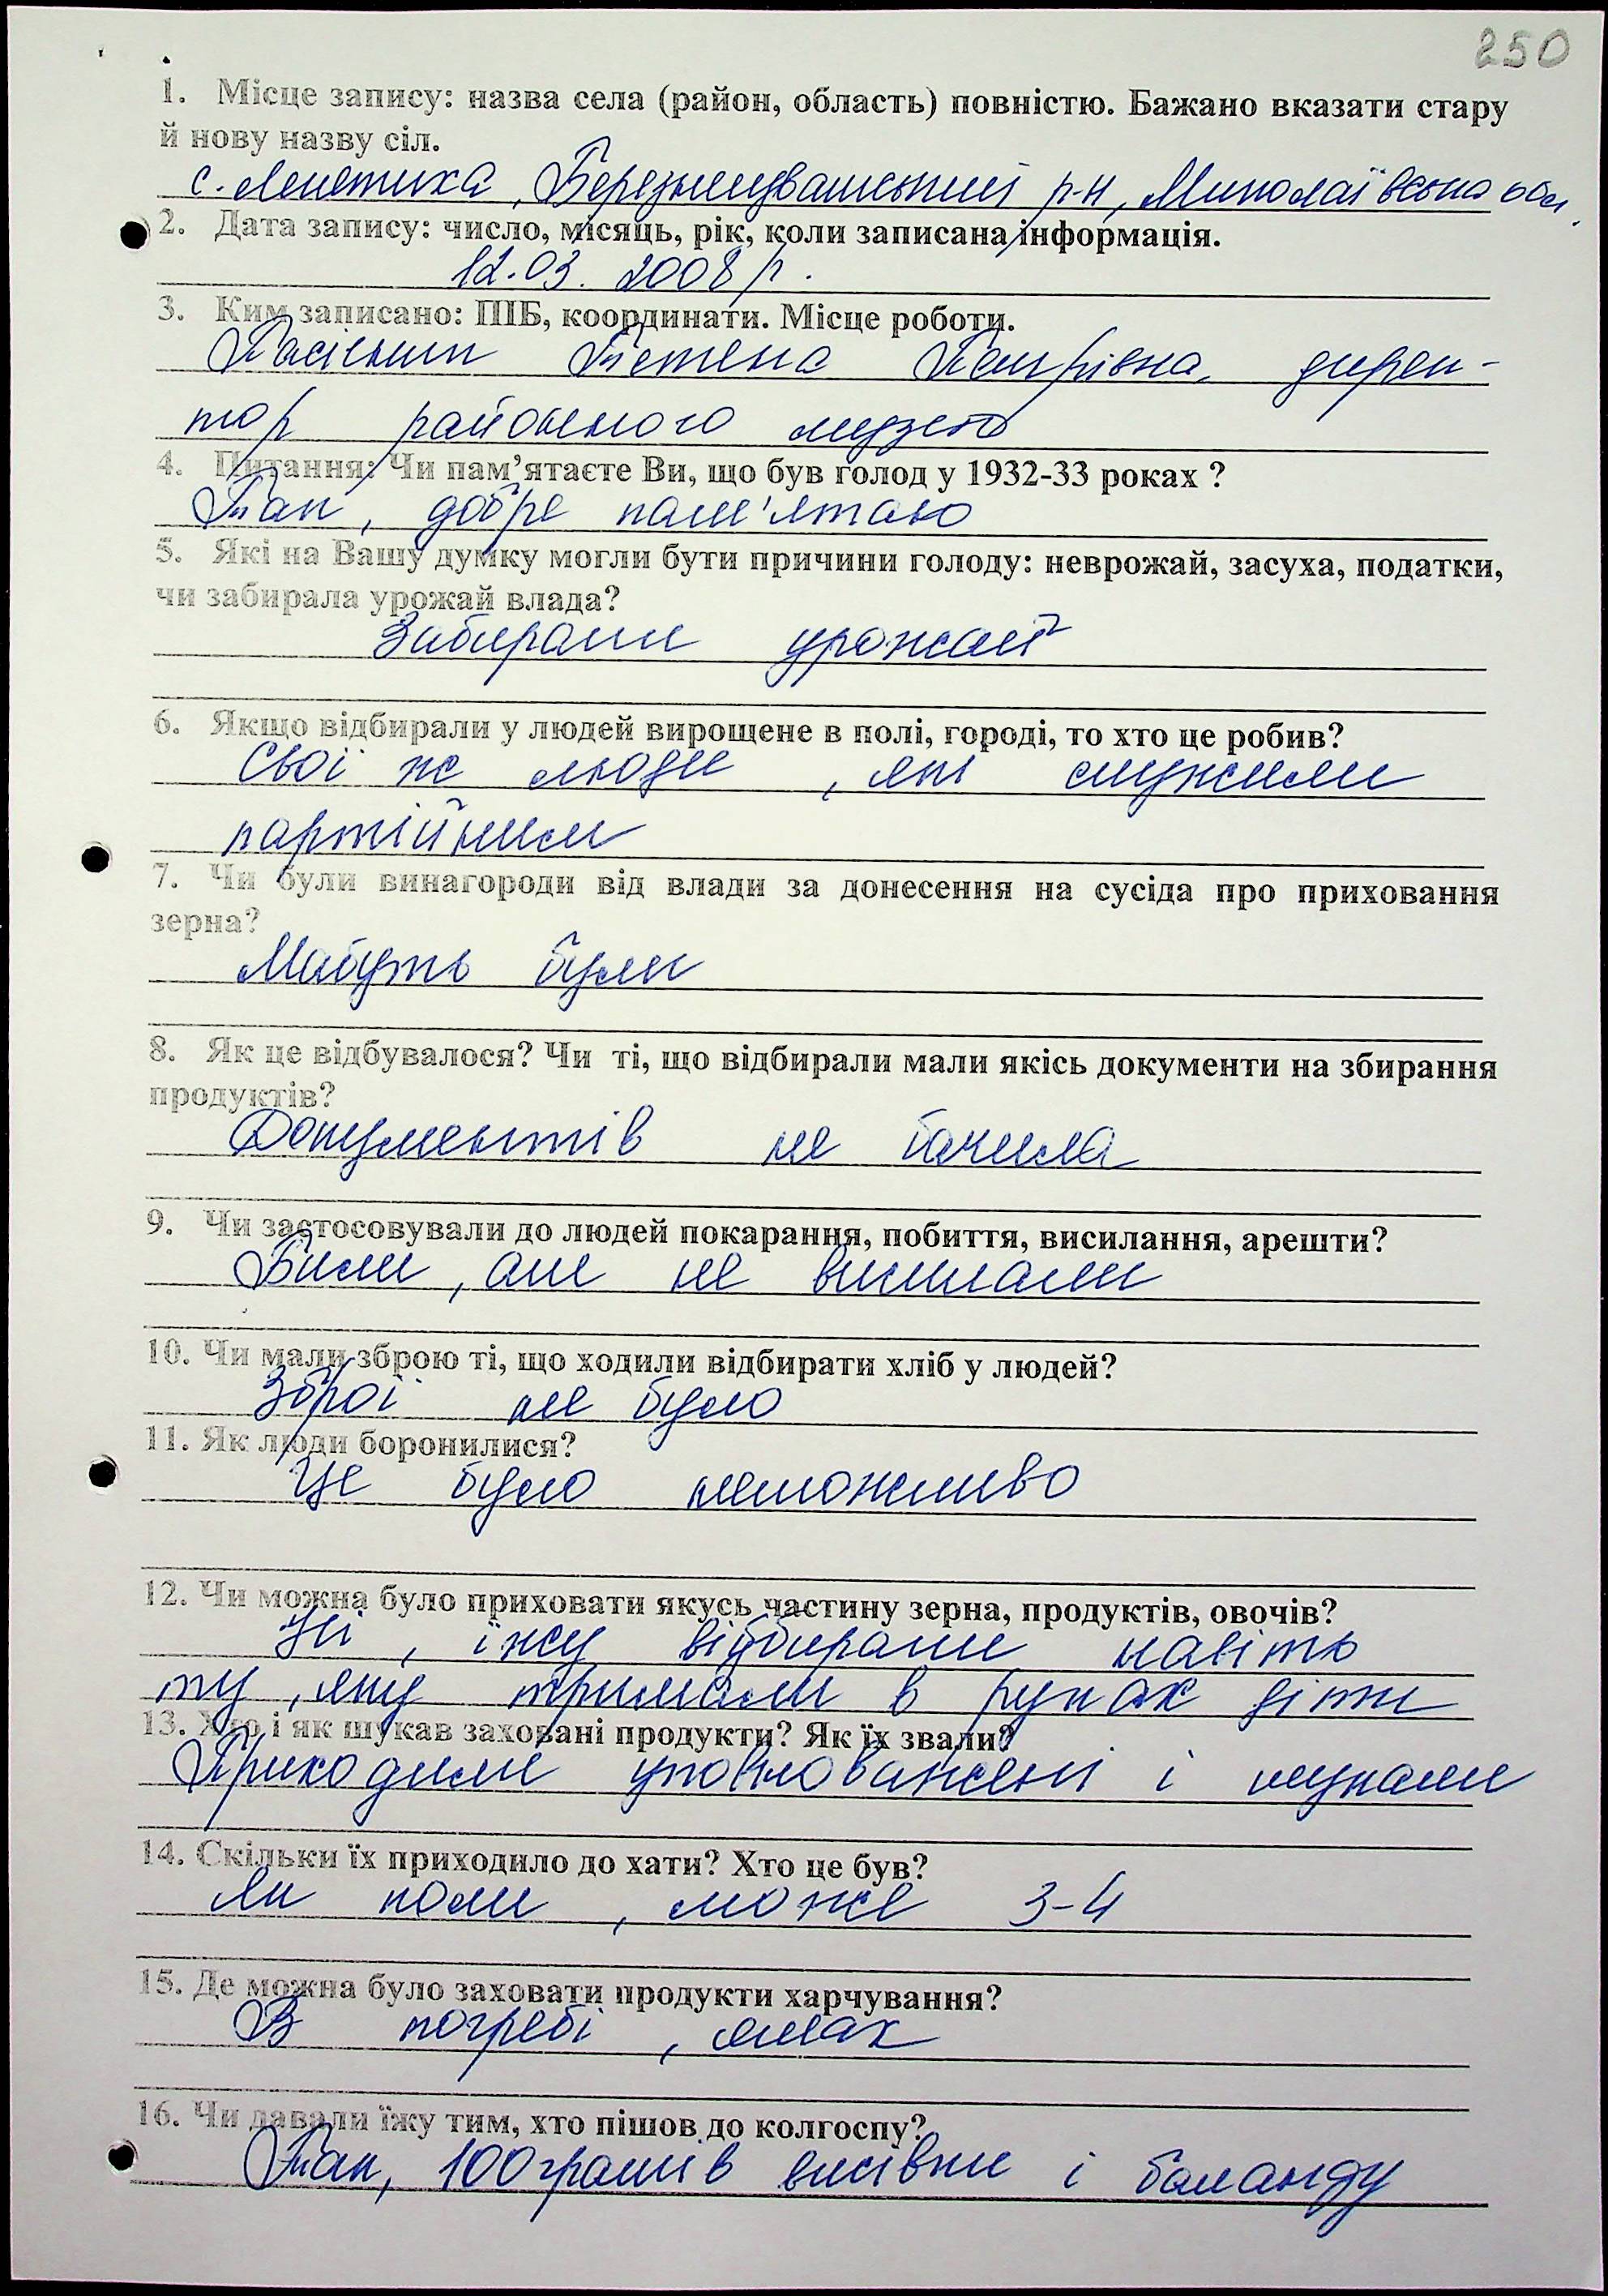 250
1. Місце запису: назва села (район, область) повністю. Бажано вказати стару
й нову назву сіл.
с. Лепетиха, Березнегуватський р-н, Миколаївська обл.
2. Дата запису: число, місяць, рік, коли записана інформація.
12.03. 2008 р.
3. Ким записано: ПІБ, координати. Місце роботи.
Тетяна Петрівна, дирек-
тор районного музею
4. Питання: Чи пам'ятаєте Ви, що був голод у 1932-33 роках ?
Так, добре пам'ятаю
5. Які на Вашу думку могли бути причини голоду: неврожай, засуха, податки,
чи забирала урожай влада?
Забирали урожай
6. Якщо відбирали у людей вирощене в полі, городі, то хто це робив?
Свої же люди, які служили
партійним
7. Чи були винагороди від влади за донесення на сусіда про приховання
зерна?
Мабуть були
8. Як це відбувалося? Чи ті, що відбирали мали якісь документи на збирання
продуктів?
Документів не бачила
9. Чи застосовували до людей покарання, побиття, висилання, арешти?
Били, але не висилали
10. Чи мали зброю ті, що ходили відбирати хліб у людей?
Зброї не було
11. Як люди боронилися?
Це було неможливо
12. Чи можна було приховати якусь частину зерна, продуктів, овочів?
Ні, їжу відбирали навіть
ту, яку тримали в руках діти
13. Хто і як шукав заховані продукти? Як їх звали?
Приходили уповноважені і шукали
14. Скільки їх приходило до хати? Хто це був?
Як коли, може 3-4
15. Де можна було заховати продукти харчування?
В погребі, ямах
16. Чи давали їжу тим, хто пішов до колгоспу?
Так, 100 грамів висівки і баланду